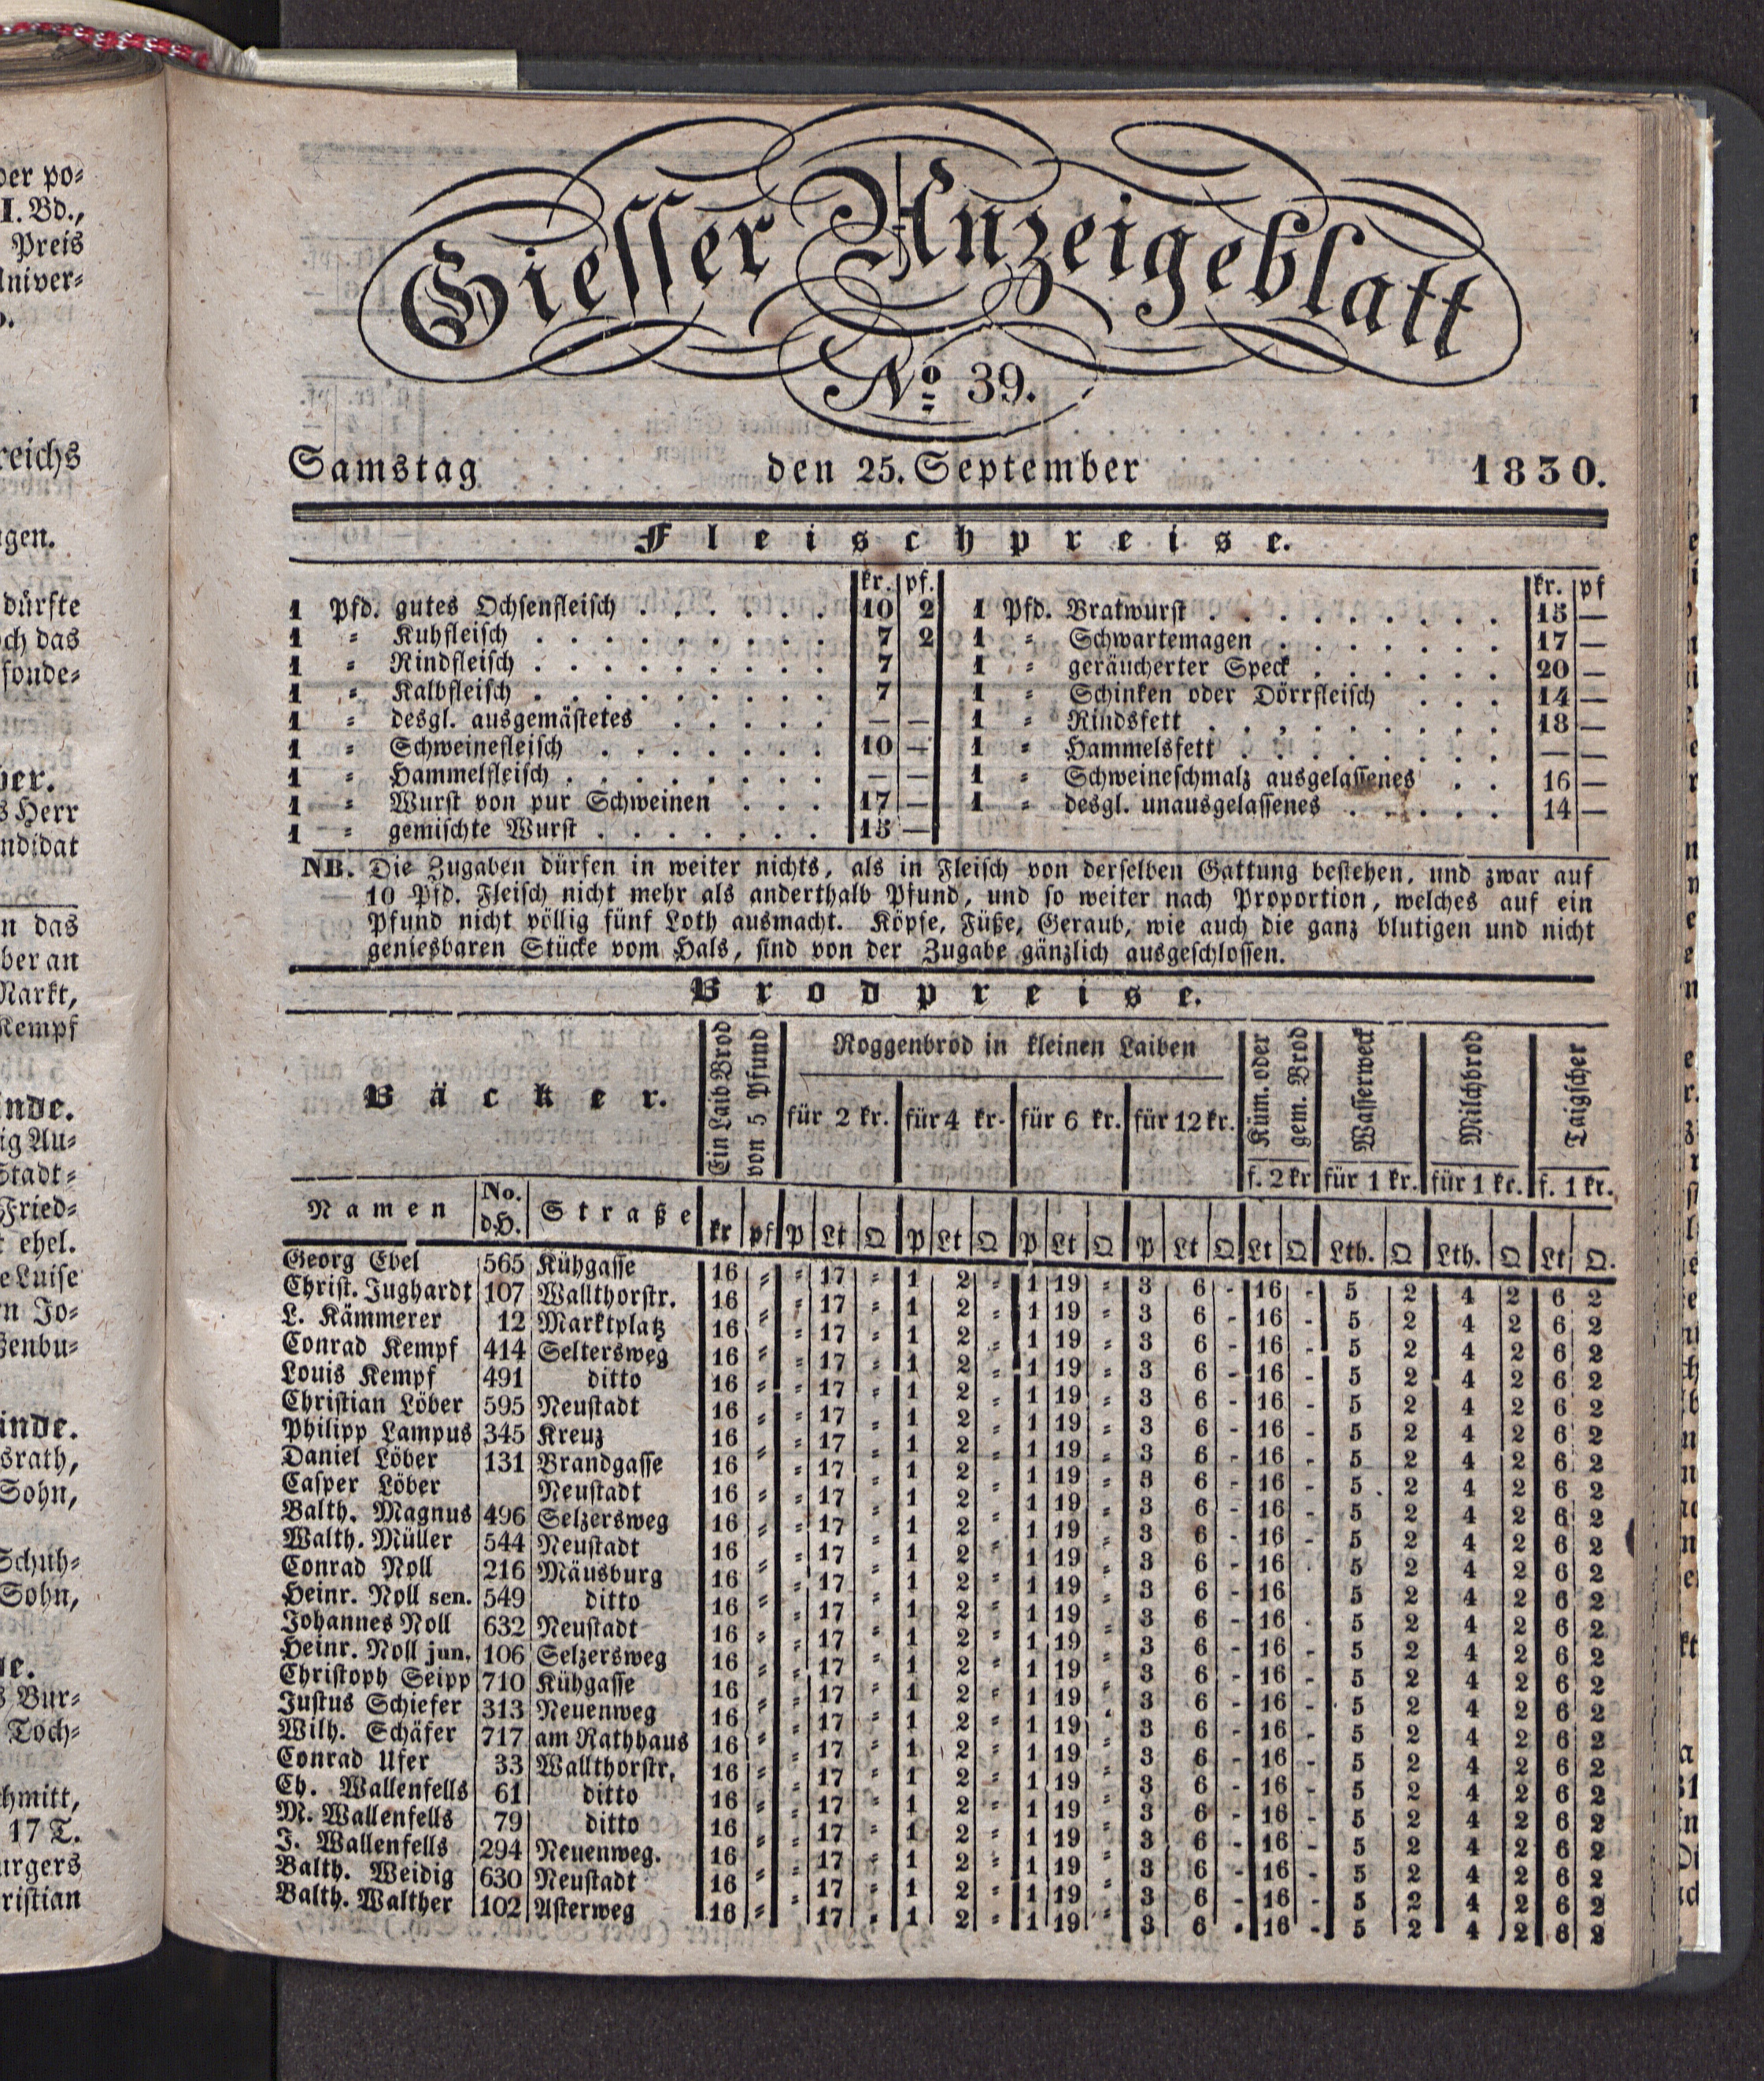 der po⸗
I. Bd.,
Preis
Univer⸗
reichs
gen.
dürfte
och das
fonde⸗
ber.
s Herr
ndidat
n das
ber an
Markt,
Kempf
inde.
ig Au⸗
Stadt⸗
Fried⸗
t ehel.
e Luise
n Jo⸗
senbu⸗
inde.
srath,
Sohn,
Schuh⸗
Sohn,
de.
s Bur⸗
Toch⸗
chmitt,
17 T.
urgers
ristian
Giesser Anzeigeblatt
No 39.
Samstag den 25. September 1830.
Fleischpreise.
kr. pf. kr. pf
1 Pfd. gutes Ochsenfleisch . . . . . . 10 2 1 Pfd. Bratwurst . . . . . . . . . 15 —
1 ⸗ Kuhfleisch . . . . . . . . . 7 2 1 ⸗ Schwartemagen . . . . . . . 17 —
1 ⸗ Rindfleisch . . . . . . . . . 7 1 ⸗ geräucherter Speck . . . . . . 20 —
1 ⸗ Kalbfleisch . . . . . . . . . 7 1 ⸗ Schinken oder Dörrfleisch . . . 14 —
1 ⸗ desgl. ausgemästetes . . . . . — — 1 ⸗ Rindsfett . . . . . . . . . 18 —
1 ⸗ Schweinefleisch . . . . . . . 10 — 1 ⸗ Hammelsfett . . . . . . . . — —
1 ⸗ Hammelfleisch . . . . . . . . — — 1 ⸗ Schweineschmalz ausgelassenes . . 16 —
1 ⸗ Wurst von pur Schweinen . . . 17 — 1 ⸗ desgl. unausgelassenes . . . . . 14 —
1 ⸗ gemischte Wurst . . . . . . . 15 —
NB. Die Zugaben dürfen in weiter nichts, als in Fleisch von derselben Gattung bestehen, und zwar auf
10 Pfd. Fleisch nicht mehr als anderthalb Pfund, und so weiter nach Proportion, welches auf ein
Pfund nicht völlig fünf Loth ausmacht. Köpfe, Füße, Geraub, wie auch die ganz blutigen und nicht
geniesbaren Stücke vom Hals, sind von der Zugabe gänzlich ausgeschlossen.
Brodpreise.
Bäcker.
Ein Laib Brod
von 5 Pfund
Roggenbrod in kleinen Laiben
für 2 kr. für 4 kr. für 6 kr. für 12 kr.
Küm. oder
gem. Brod
f. 2 kr
Wasserweck
für 1 kr.
Milchbrod
für 1 kr.
Taigscher
f. 1 kr.
Namen No. d.H. Straße kr pf P Lt Q P Lt Q P Lt Q P Lt Q Lt Q Lth. Q Lth. Q Lt Q.
Georg Ebel 565 Kühgasse 16 ⸗ ⸗ 17 ⸗ 1 2 ⸗ 1 19 ⸗ 3 6 - 16 - 5 2 4 2 6 2
Christ. Jughardt 107 Wallthorstr. 16 ⸗ ⸗ 17 ⸗ 1 2 ⸗ 1 19 ⸗ 3 6 - 16 - 5 2 4 2 6 2
L. Kämmerer 12 Marktplatz 16 ⸗ ⸗ 17 ⸗ 1 2 ⸗ 1 19 ⸗ 3 6 - 16 - 5 2 4 2 6 2
Conrad Kempf 414 Seltersweg 16 ⸗ ⸗ 17 ⸗ 1 2 ⸗ 1 19 ⸗ 3 6 - 16 - 5 2 4 2 6 2
Louis Kempf 491 ditto 16 ⸗ ⸗ 17 ⸗ 1 2 ⸗ 1 19 ⸗ 3 6 - 16 - 5 2 4 2 6 2
Christian Löber 595 Neustadt 16 ⸗ ⸗ 17 ⸗ 1 2 ⸗ 1 19 ⸗ 3 6 - 16 - 5 2 4 2 6 2
Philipp Lampus 345 Kreuz 16 ⸗ ⸗ 17 ⸗ 1 2 ⸗ 1 19 ⸗ 3 6 - 16 - 5 2 4 2 6 2
Daniel Löber 131 Brandgasse 16 ⸗ ⸗ 17 ⸗ 1 2 ⸗ 1 19 ⸗ 3 6 - 16 - 5 2 4 2 6 2
Casper Löber Neustadt 16 ⸗ ⸗ 17 ⸗ 1 2 ⸗ 1 19 ⸗ 3 6 - 16 - 5 2 4 2 6 2
Balth. Magnus 496 Selzersweg 16 ⸗ ⸗ 17 ⸗ 1 2 ⸗ 1 19 ⸗ 3 6 - 16 - 5 2 4 2 6 2
Walth. Müller 544 Neustadt 16 ⸗ ⸗ 17 ⸗ 1 2 ⸗ 1 19 ⸗ 3 6 - 16 - 5 2 4 2 6 2
Conrad Noll 216 Mäusburg 16 ⸗ ⸗ 17 ⸗ 1 2 ⸗ 1 19 ⸗ 3 6 - 16 - 5 2 4 2 6 2
Heinr. Noll sen. 549 ditto 16 ⸗ ⸗ 17 ⸗ 1 2 ⸗ 1 19 ⸗ 3 6 - 16 - 5 2 4 2 6 2
Johannes Noll 632 Neustadt 16 ⸗ ⸗ 17 ⸗ 1 2 ⸗ 1 19 ⸗ 3 6 - 16 - 5 2 4 2 6 2
Heinr. Noll jun. 106 Selzersweg 16 ⸗ ⸗ 17 ⸗ 1 2 ⸗ 1 19 ⸗ 3 6 - 16 - 5 2 4 2 6 2
Christoph Seipp 710 Kühgasse 16 ⸗ ⸗ 17 ⸗ 1 2 ⸗ 1 19 ⸗ 3 6 - 16 - 5 2 4 2 6 2
Justus Schiefer 313 Neuenweg 16 ⸗ ⸗ 17 ⸗ 1 2 ⸗ 1 19 ⸗ 3 6 - 16 - 5 2 4 2 6 2
Wilh. Schäfer 717 am Rathhaus 16 ⸗ ⸗ 17 ⸗ 1 2 ⸗ 1 19 ⸗ 3 6 - 16 - 5 2 4 2 6 2
Conrad Ufer 33 Wallthorstr. 16 ⸗ ⸗ 17 ⸗ 1 2 ⸗ 1 19 ⸗ 3 6 - 16 - 5 2 4 2 6 2
Ch. Wallenfells 61 ditto 16 ⸗ ⸗ 17 ⸗ 1 2 ⸗ 1 19 ⸗ 3 6 - 16 - 5 2 4 2 6 2
M. Wallenfells 79 ditto 16 ⸗ ⸗ 17 ⸗ 1 2 ⸗ 1 19 ⸗ 3 6 - 16 - 5 2 4 2 6 2
J. Wallenfells 294 Neuenweg. 16 ⸗ ⸗ 17 ⸗ 1 2 ⸗ 1 19 ⸗ 3 6 - 16 - 5 2 4 2 6 2
Balth. Weidig 630 Neustadt 16 ⸗ ⸗ 17 ⸗ 1 2 ⸗ 1 19 ⸗ 3 6 - 16 - 5 2 4 2 6 2
Balth. Walther 102 Asterweg 16 ⸗ ⸗ 17 ⸗ 1 2 ⸗ 1 19 ⸗ 3 6 - 16 - 5 2 4 2 6 2